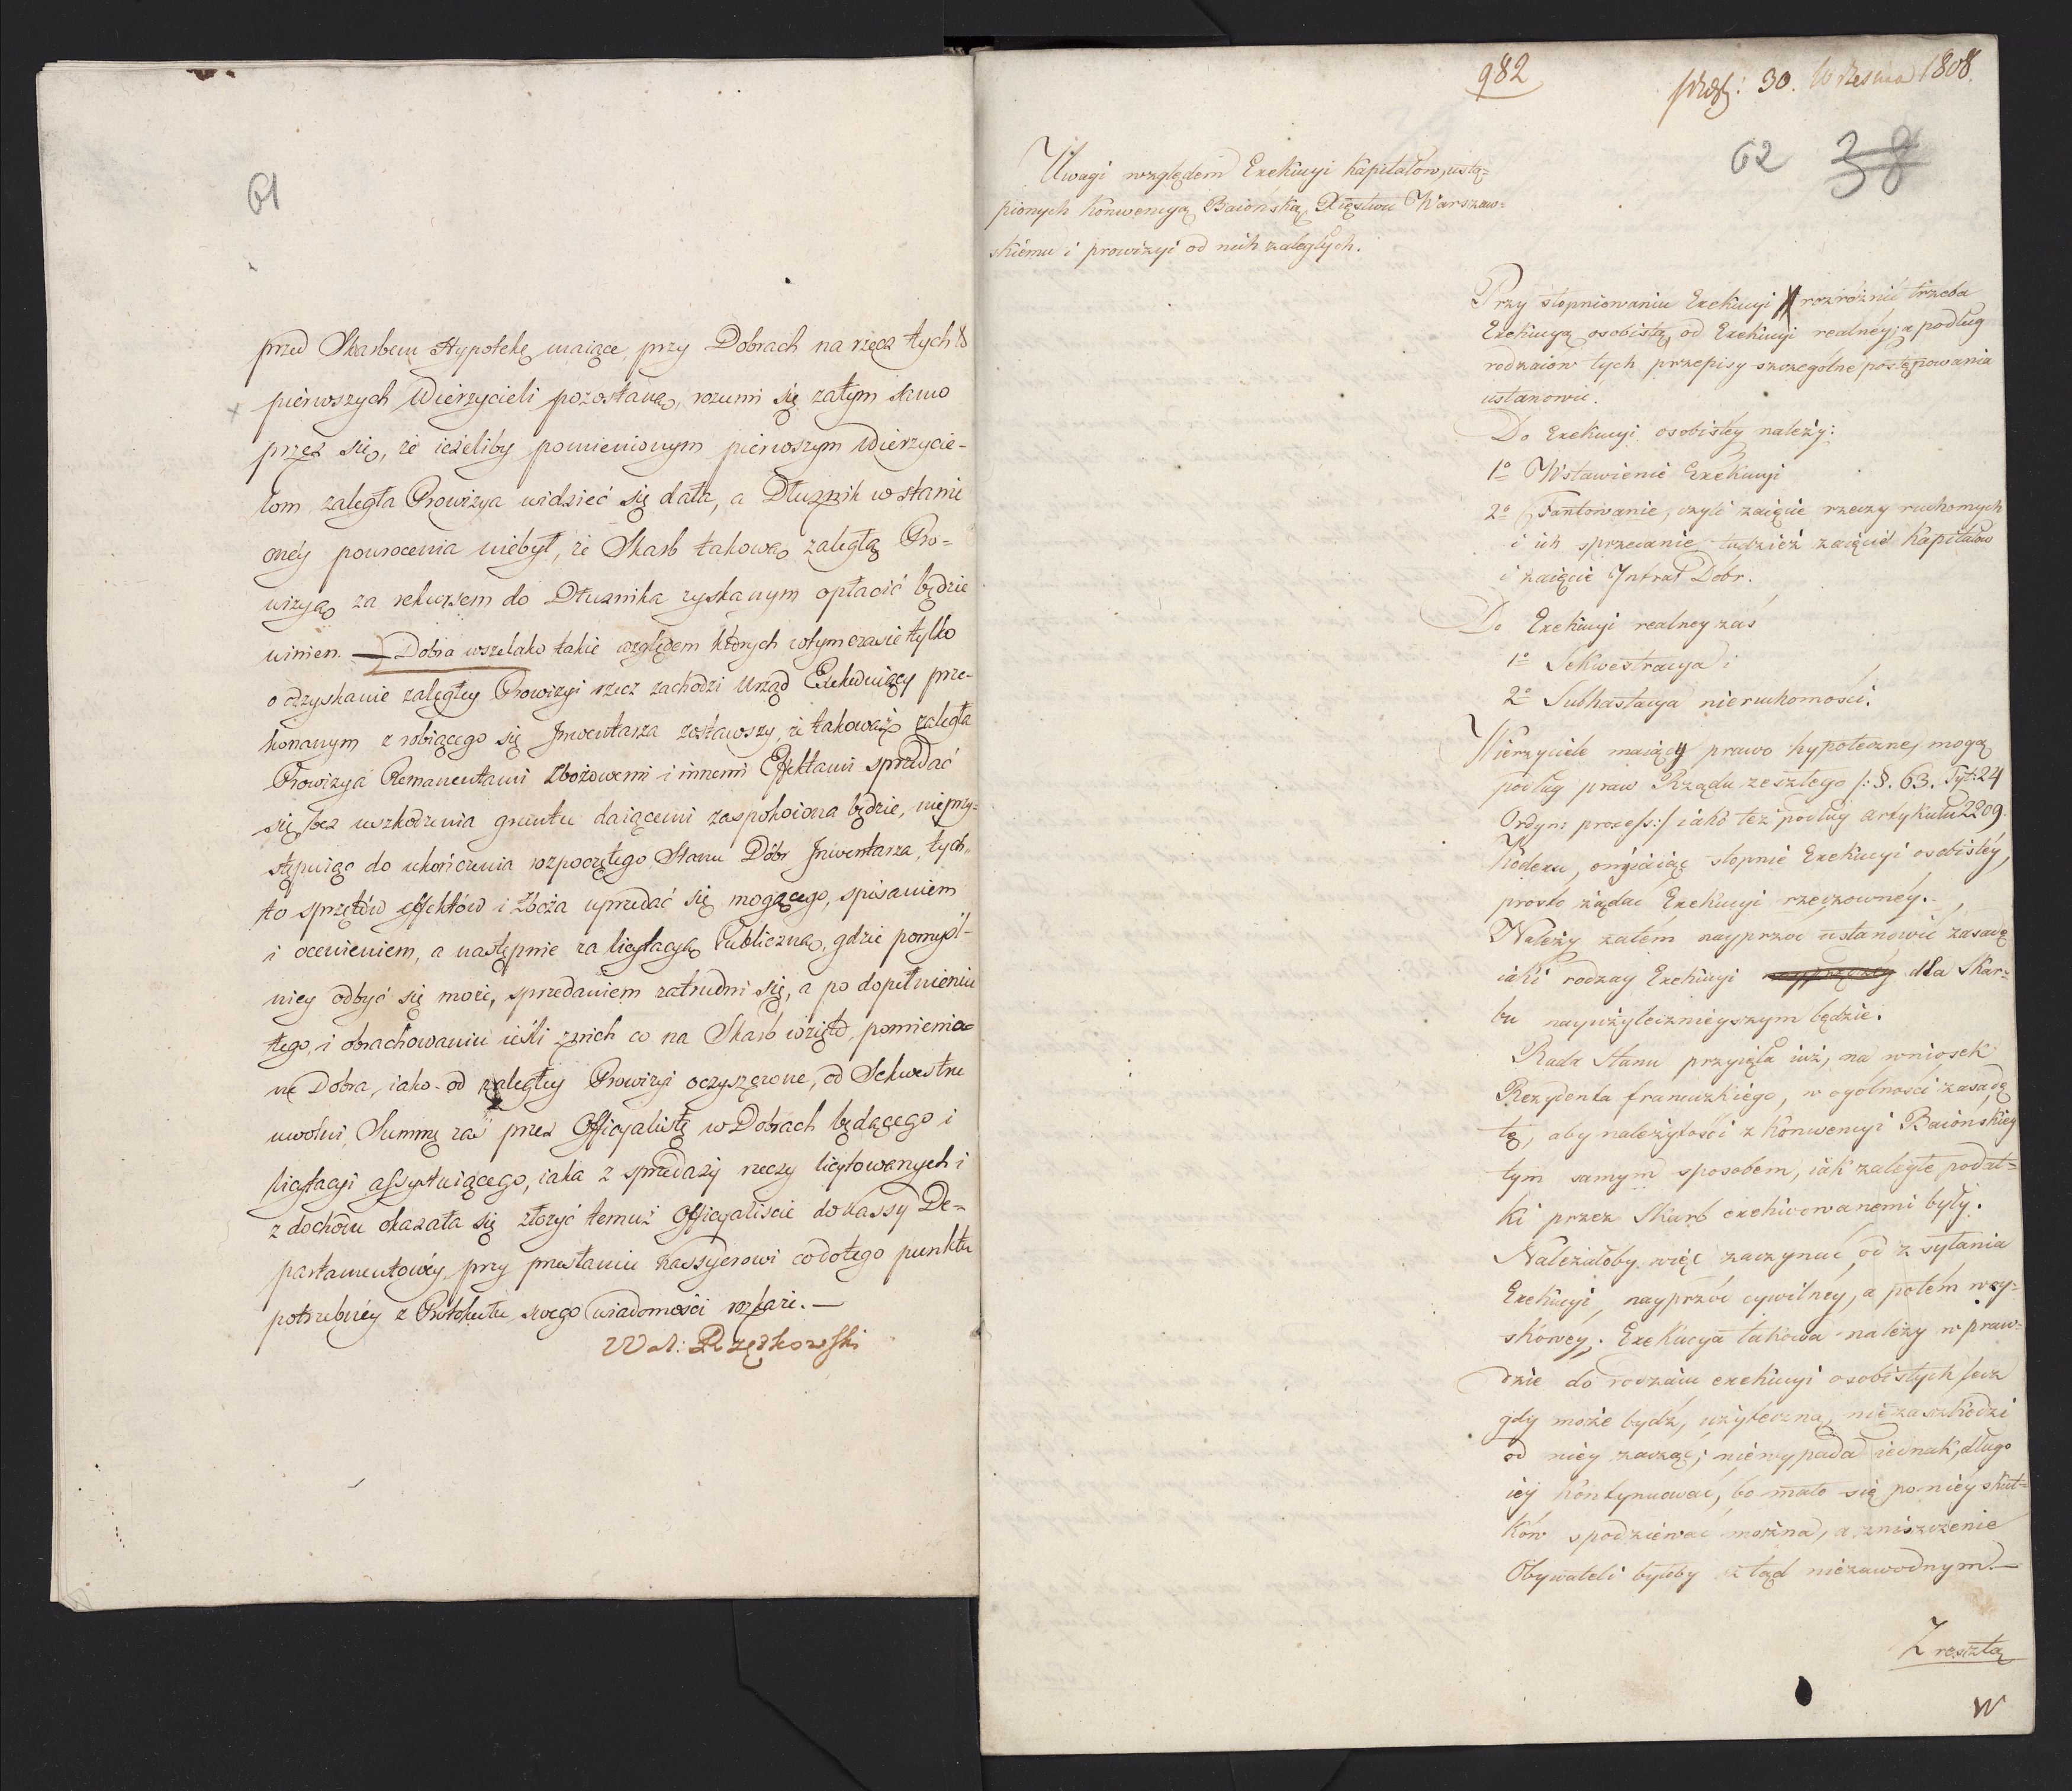 61
przed Skarbem Hypotekę maiące, przy Dobrach na rzecz tychż
pierwszych Wierzycieli pozostaną, rozumi się zatym samo
przez się, że ieżeliby pomienionym pierwszym Wierzycie-
lom zaległa Prowizya widzieć się dała, a Dłużnik w stanie
onéy powrócenia niebył, że Skarb takową zaległą Pro=
wizyą za rekursem do Dłużnika zyskanym opłacić będzie
winien. — Dobra wszelako takie względem których wtymczasie tylko
o odzyskanie zaległey Prowizyi rzecz zachodzi Urząd Exekwuiący prze-
konanym z robiącego się Inwentarza zostawszy, że takoważ zaległa
Prowizya Remanentami Zbożowemi i innemi Effektami sprzedać
się bez uszkodzenia gruntu daiącemi zaspokoiona będzie, nieprzy-
stępuiąc do ukończenia rozpoczętego Stanu Dóbr Inwentarza, tych-
to sprzętów effektów i zboża uprzedać się mogącego, spisaniem
i ocenieniem, a następnie za licytacyą Publiczną, gdzie pomyśl-
niey odbyć się może, sprzedaniem zatrudni się, a po dopełnieniu
tego, i obrachowaniu ieśli z nich co na Skarb wzięto, pomienio-
ne Dobra, iako od zaległey Prowizyi oczyszczone, od Sekwestru
uwolni, Summę zaś przez Officyalistę w Dobrach będącego i
licytacyi assystuiącego, iaka z sprzedaży rzeczy licytowanych i
z dochodu okazała się złożyć temuż Officyaliscie do Kassy De-
partamentowéy przy przesłaniu Kassyerowi co do tego punktu
potrzebnéy z Protokułu swego wiadomości rozkaże. —
982
prez: 30. Wrzesnia 1808.
62 38
Uwagi względem Exekucyi Kapitałow, ustą=
pionych Konwencyą Baiońską Xięstwu Warszaw=
skiému i prowizyi od nich zaległych.
Przy stopniowaniu Exekucyi rozróżnić trzeba
Exekucyą osobistą od Exekucyi realnéy; a podług
rodzaiow tych przepisy szczególne postępowania
ustanowić.
Do Exekucyi osobistéy należy:
1o Wstawienié Exekucyi
2o Fantowanie, czyli zaięcie rzeczy ruchomych
i ich sprzedanie tudzież zaięcié Kapitałow
i zaięcie Intrat Dobr.
Do Exekucyi realney zaś
1o Sekwestracya i
2o Subhastacya nieruchomości.
Wierzyciele maiący prawo hypoteczne, mogą
podług praw Rządu zeszłego /: §. 63. Tyt: 24
Ordyn: process:/ iako też podług artykułu 2209.
Kodexu, stopnie Exekucyi osobistéy,
prosto żądać Exekucyi rzeczownéy.
Należy zatém nayprzod ustanowić zasadę
iaki rodzay Exekucyi dla Skar=
bu nayużytecznieyszym będzie.
Rada Stanu przyięła iuż, na wniosek
Rezydenta francuzkiégo, w ogolności zasadę
tę, aby należytości z Konwencyi Baionskiey
tym samym sposobem, iak zaległe podat=
ki przez Skarb exekwowanemi były.
Należałoby więc zaczynać od zsyłania
Exekucyi, nayprzód cywilnéy, a potém woy=
skowéy. Exekucya takowa należy w praw=
dzie do rodzaiu exekucyi osobistych lecz
gdy może bydź użyteczną, niezaszkodzi
od niéy zacząć; niewypada iednak, długo
iéy kontynuować, bo mało się po niéy skut=
ków spodziéwać można, a zniszczenie
Obywateli byłoby ztąd niezawodnym.—
Zresztą
W